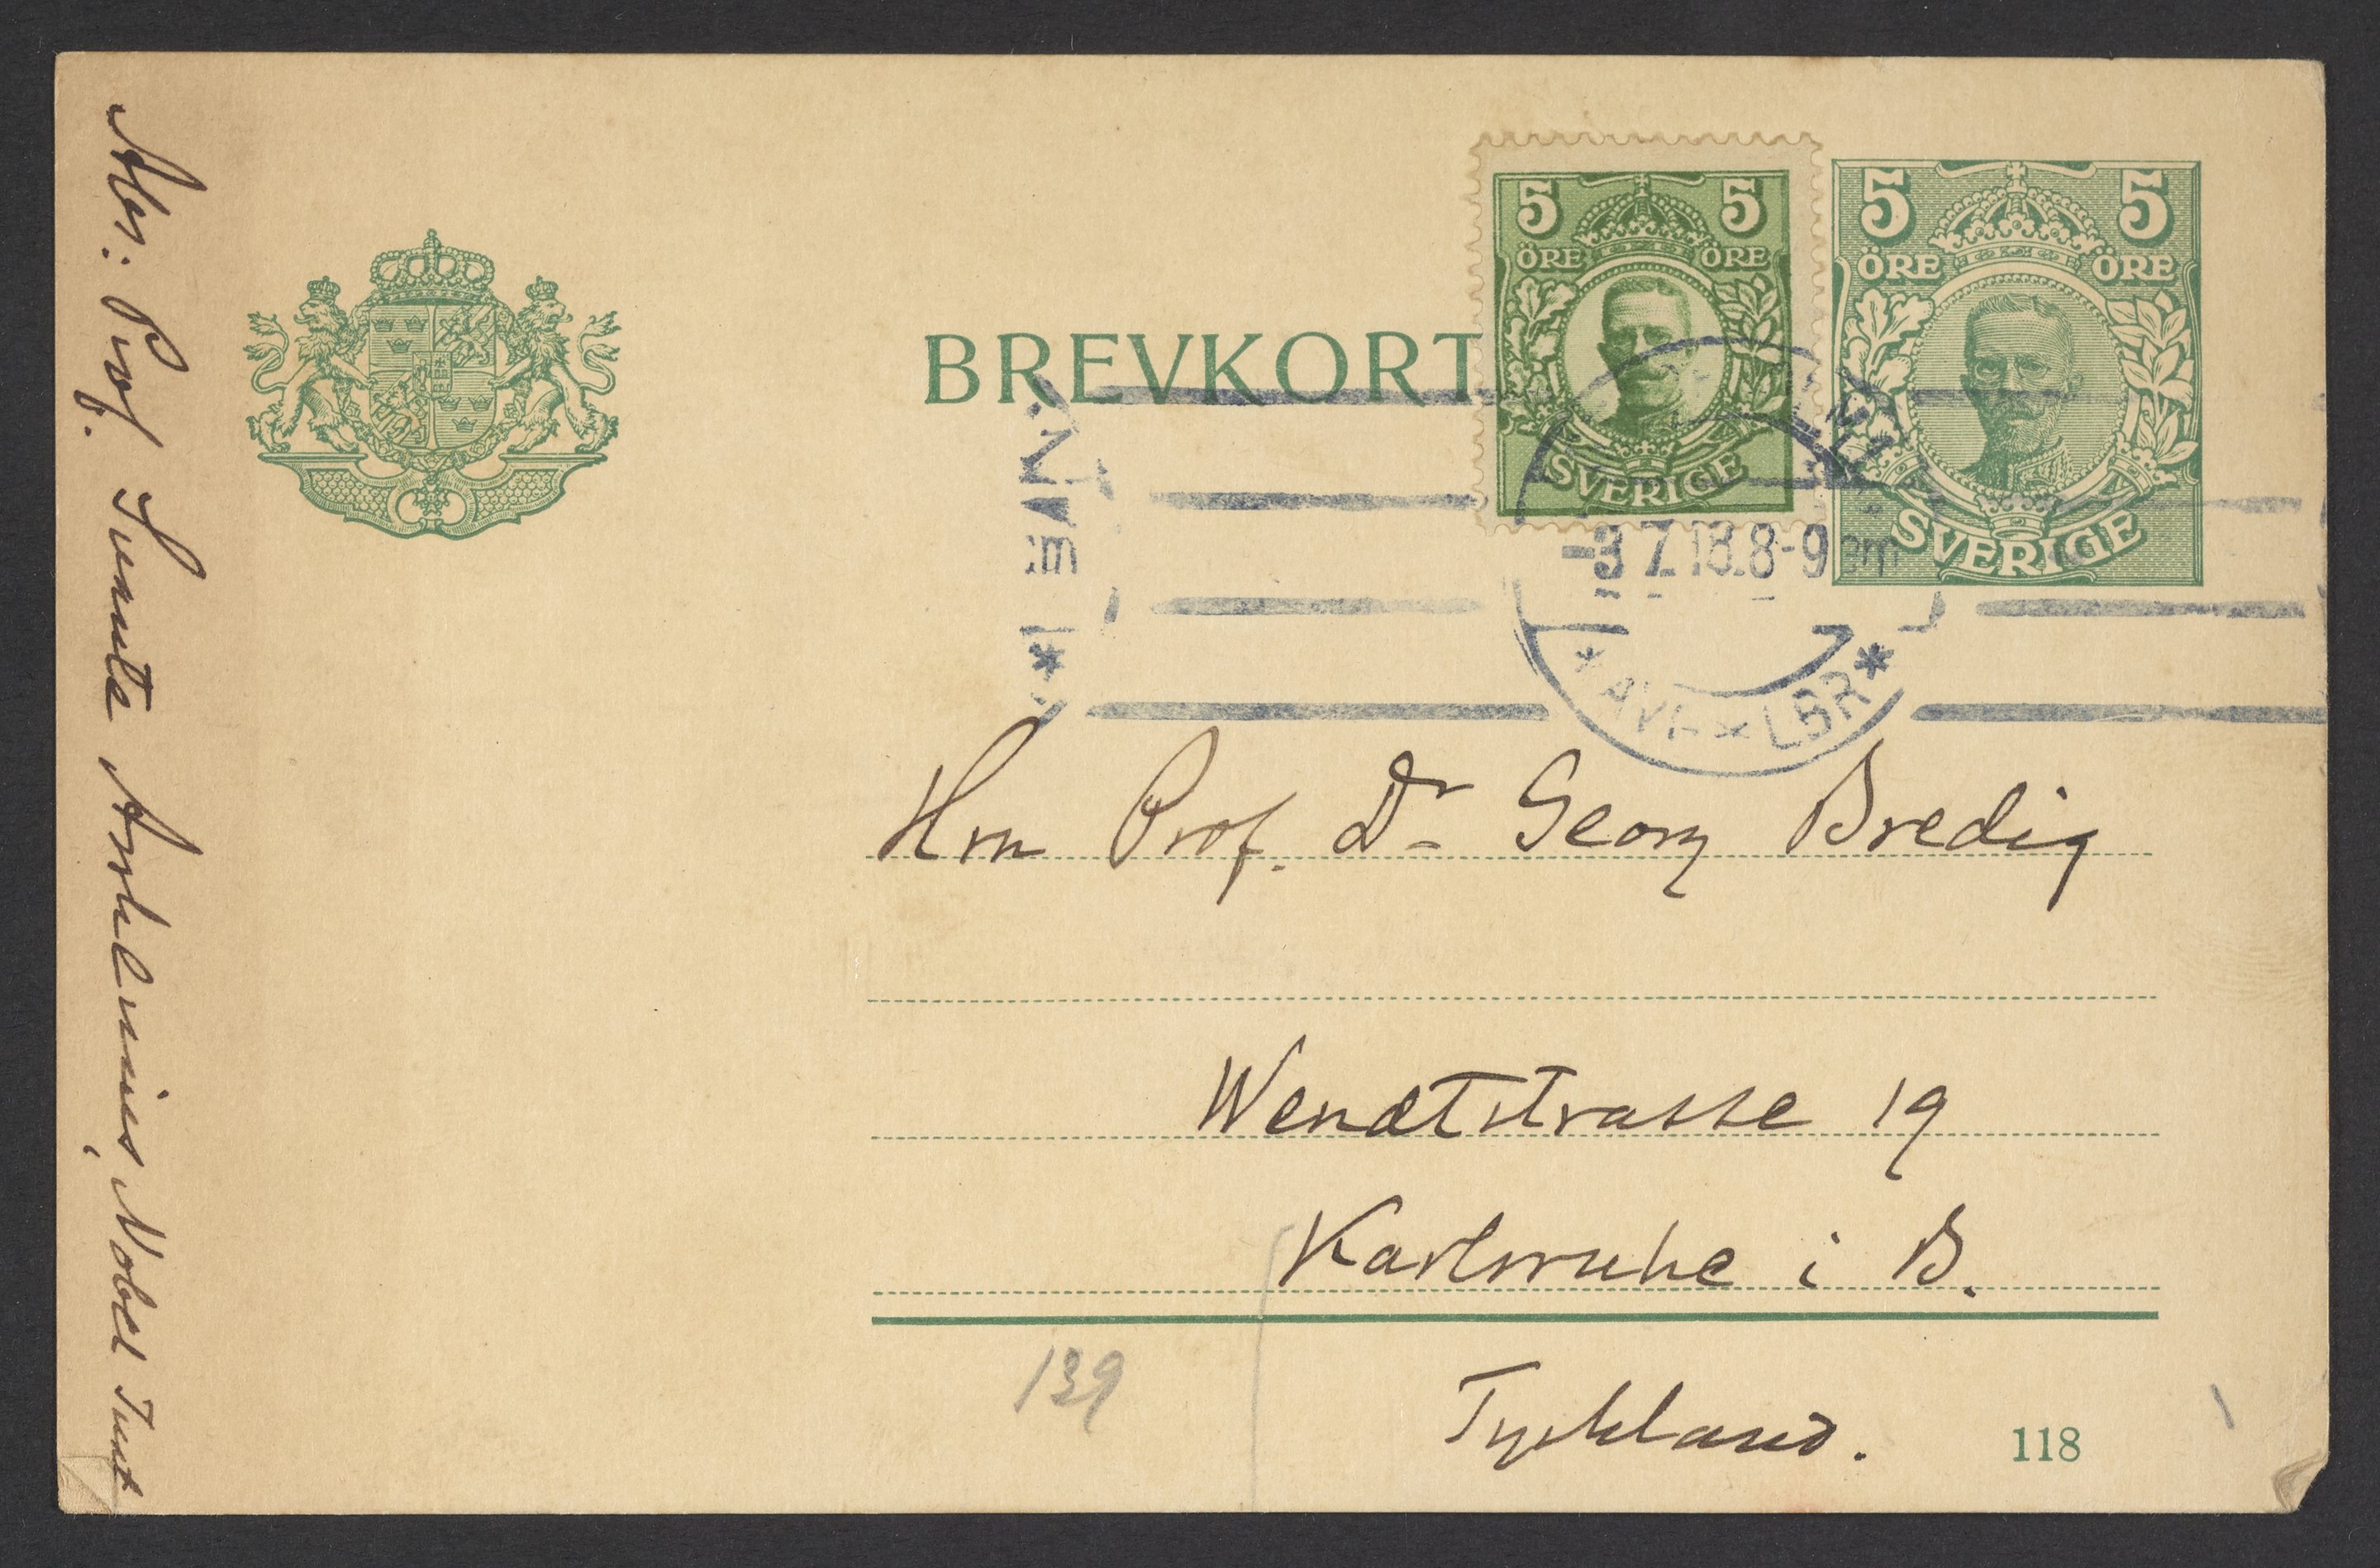 Abs: Prof. Svante Arrhenius, Nobel Inst
BREVKORT
5 5
ÖRE ÖRE
SVERIGE
5 5
ÖRE ÖRE
SVERIGE
-3 7.18.8-9 em
* AVG * LBR *
Hrn Prof. Dr Georg Bredig
Wendtstrasse 19
Karlsruhe i B.
Tyskland.
139
118